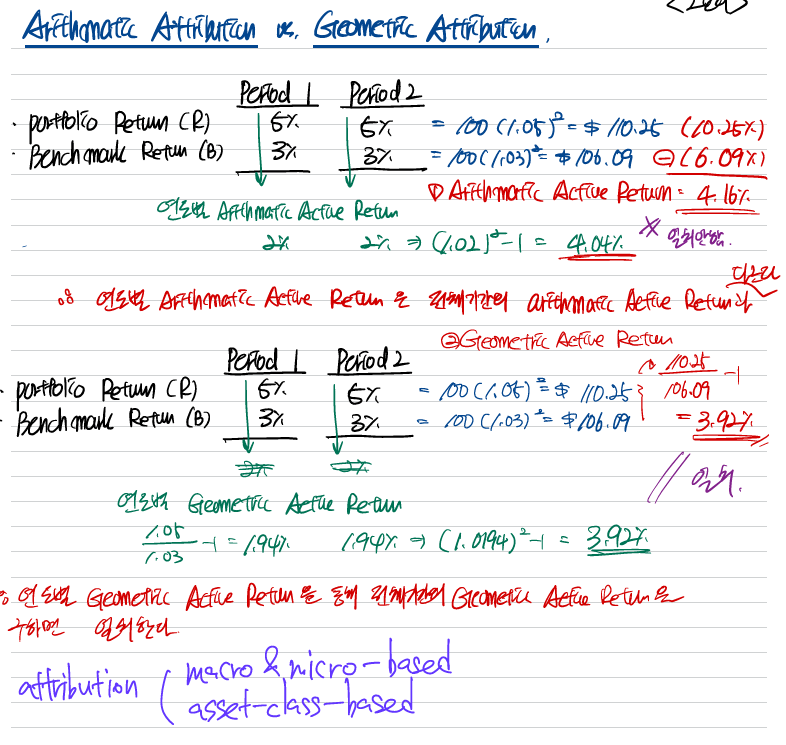 Arithmatic Attribution vs. Geometric Attribution.
Period 1 Period 2
· portfolio Return (R) 5% 5% = 100 (1.05)² = $ 110.25 (10.25%)
· Benchmark Retun (B) 3% 3% = 100 (1.03)² = $ 106.09 ⊖ (6.09%)
① Arithmatic Active Return = 4.16%
연도별 Arithmatic Active Retun
2% 2% ⇒ (1.02)² -1 = 4.04% * 일치안함.
∴ 연도별 Arithmatic Active Retun 은 전체기간의 arithmatic Active Retun과 다르다
② Geometric Active Retun
Period 1 Period 2
· portfolio Retun (R) 5% 5% = 100 (1.05)² = $ 110.25
· Benchmark Retun (B) 3% 3% = 100 (1.03)² = $ 106.09
110.25 / 106.09 -1
= 3.92%
2% 2%
// 일치.
연도별 Geometric Active Retun
1.05 / 1.03 -1 = 1.94% 1.94% ⇒ (1.0194)² -1 = 3.92%
∴ 연도별 Geometric Active Retun을 통해 전체기간의 Geometric Active Retun을
구하면 일치한다
attribution ( macro & micro-based
asset-class-based